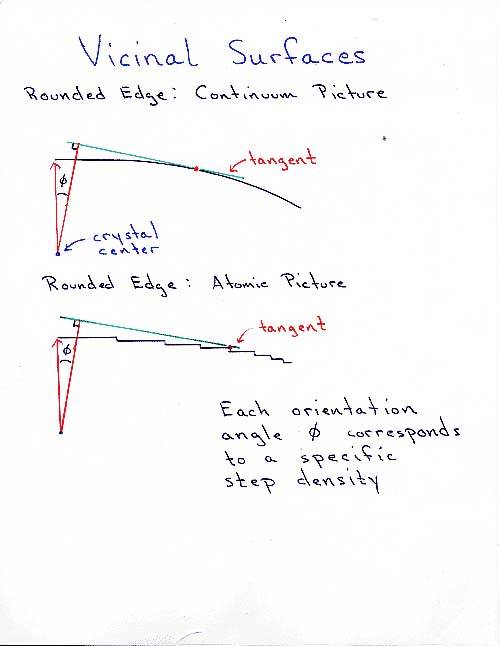 Vicinal Surfaces
Rounded Edge: Continuum Picture
tangent
ϕ
crystal
center
Rounded Edge: Atomic Picture
tangent
ϕ
Each orientation
angle ϕ corresponds
to a specific
step density